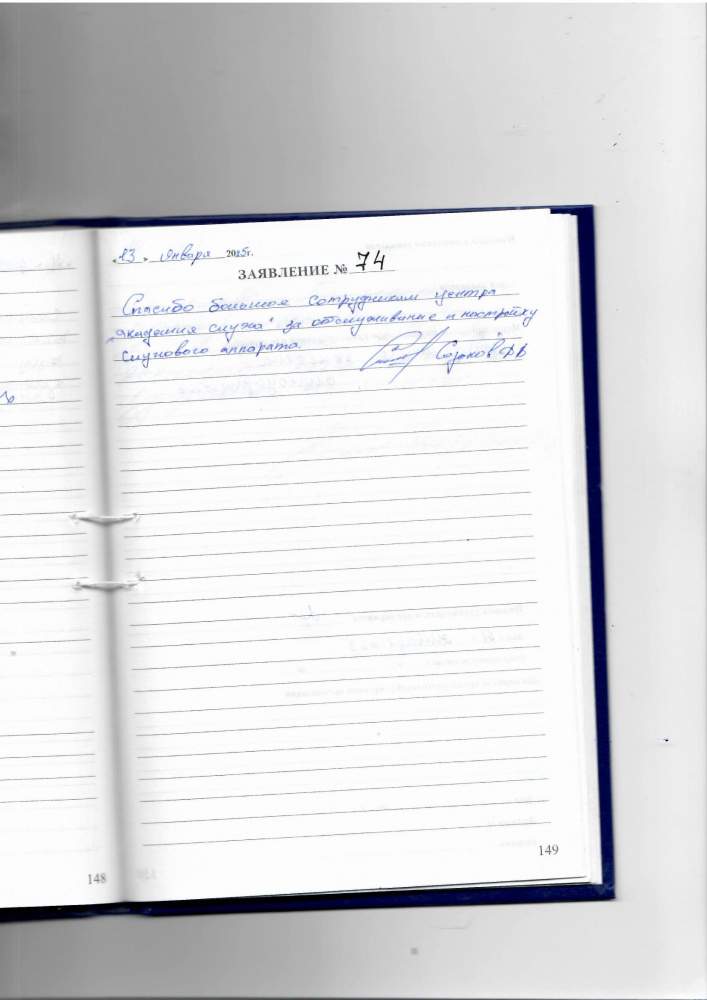 «23» января 2025г.
ЗАЯВЛЕНИЕ № 74
Спасибо большое сотрудникам центра
"Академия слуха" за обслуживание и настройку
слухового аппарата.
148
149